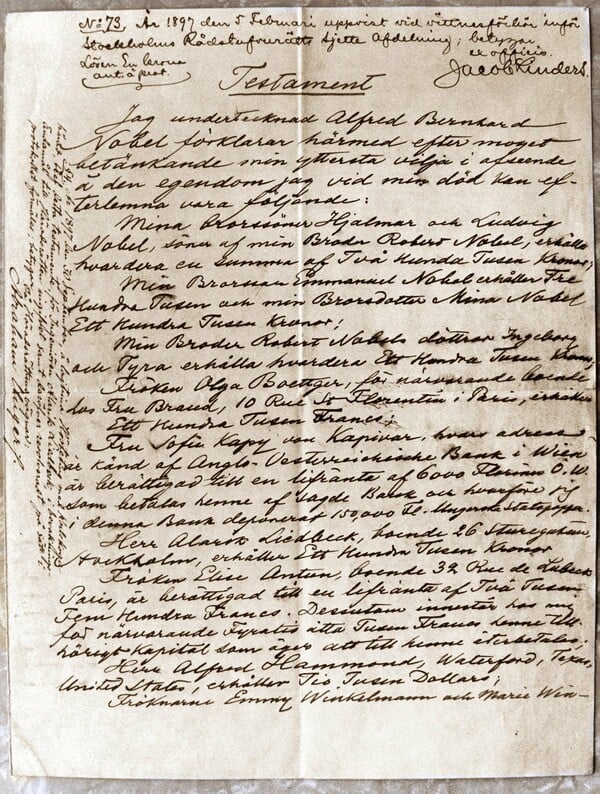 No 73. År 1897 den 5 Februari uppvist vid vittnesförhör inför
Stockholms Rådstufvurätts Sjette Afdelning; betygar
ex officio.
Jacob Linders.
Testament
Jag undertecknad Alfred Bernhard
Nobel förklarar härmed efter moget
betänkande min yttersta vilja i afseende
å den egendom jag vid min död kan ef-
terlemna vara följande:
Mina brorsöner Hjalmar och Ludvig
Nobel, söner af min Broder Robert Nobel, erhålla
hvardera en summa af Två Hundra Tusen Kronor;
Min Brorson Emmanuel Nobel erhåller Tre
Hundra Tusen och min Brorsdotter Mina Nobel
Ett Hundra Tusen Kronor;
Min Broder Robert Nobels döttrar Ingeborg
och Tyra erhålla hvardera Ett Hundra Tusen Kronor;
Fröken Olga Boettger, för närvarande boende
hos Fru Brand, 10 Rue St Florentin i Paris, erhåller
Ett Hundra Tusen Francs;
Fru Sofie Kapy von Kapivar, hvars adress
är känd af Anglo-Oesterreichische Bank i Wien
är berättigad till en lifränta af 6000 Florins Ö.W.
som betalas henne af sagde Bank och hvarföre jag
i denna Bank deponerat 150,000 Fl. i Ungerska Statspapper.
Herr Alarik Liedbeck, boende 26 Sturegatan,
Stockholm, erhåller Ett Hundra Tusen Kronor
Fröken Elise Antun, boende 32 Rue de Lubeck
Paris, är berättigad till en lifränta af Två Tusen
Fem Hundra Francs. Desutom innestår hos mig
för närvarande Fyratio åtta Tusen Francs henne till-
hörigt Kapital som äger att till henne återbetalas;
Herr Alfred Hammond, Waterford, Texas,
United States, erhåller Tio Tusen Dollars;
Fröknarne Emmy Winkelmann och Marie Win-